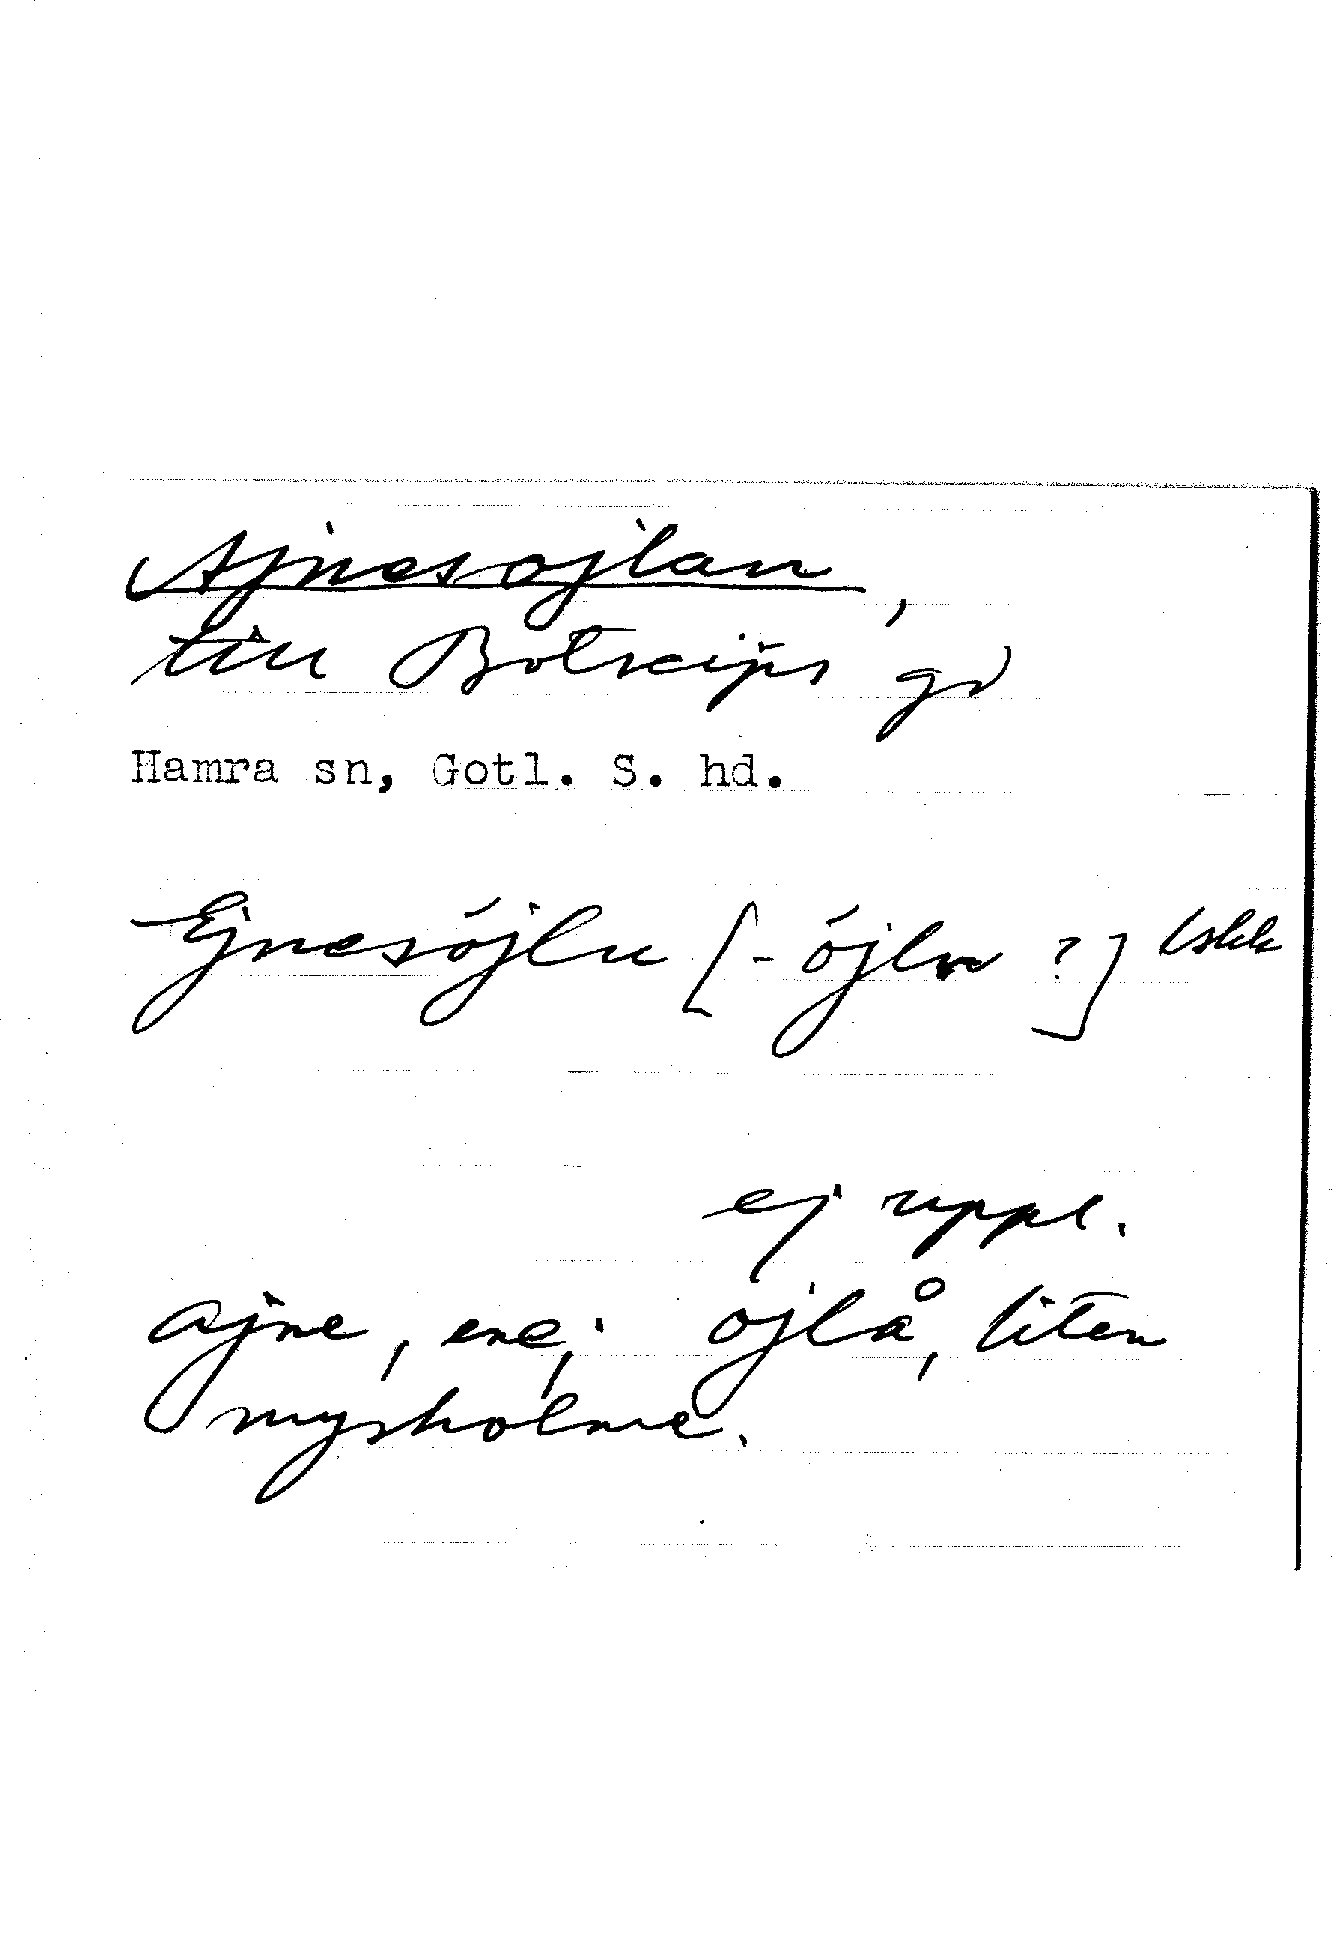 Ajnesojlan,
till Botreips gd
Hamra sn, Gotl. S. hd.
Ejnesójlu [-ójln ?] lskk
ej uppl.
ajne, ene; ojlå, liten
myrholme.